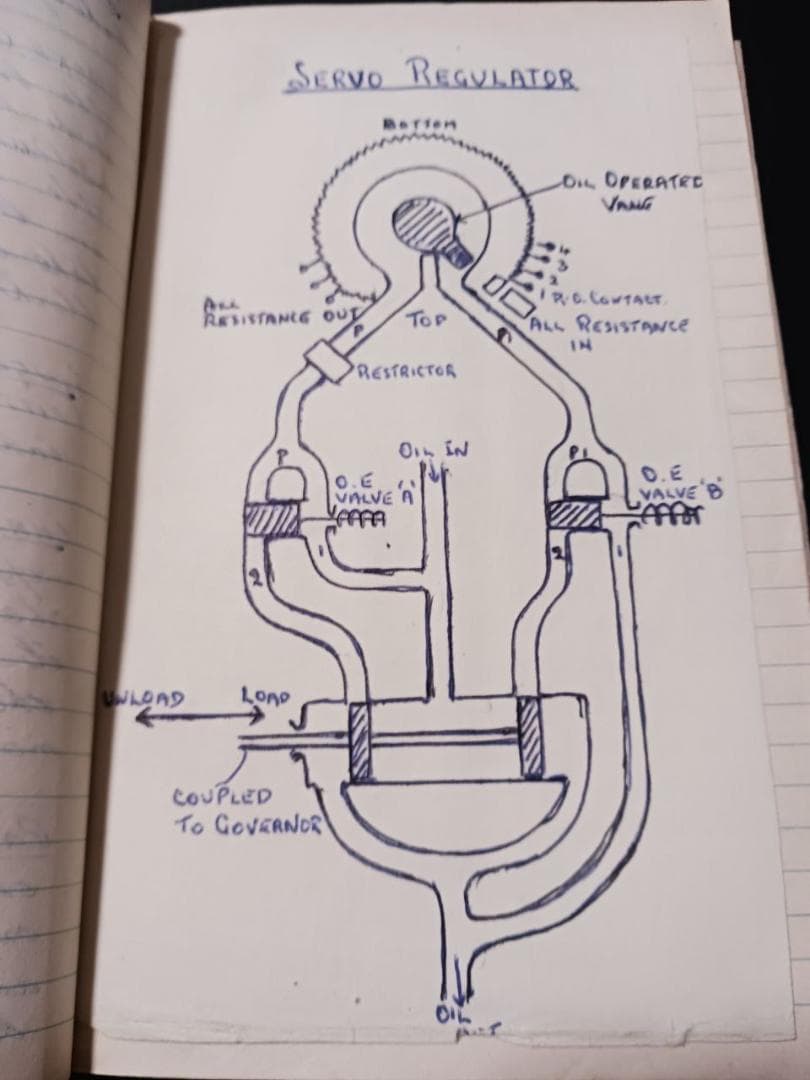 SERVO REGULATOR
BOTTOM
OIL OPERATED
VANE
4
3
2
1 R.G. CONTACT.
ALL
RESISTANCE OUT
TOP
ALL RESISTANCE
IN
P
P
RESTRICTOR
OIL IN
P
P1
O.E
VALVE 'A'
O.E
VALVE 'B'
1
1
2
2
UNLOAD
LOAD
COUPLED
TO GOVERNOR
OIL